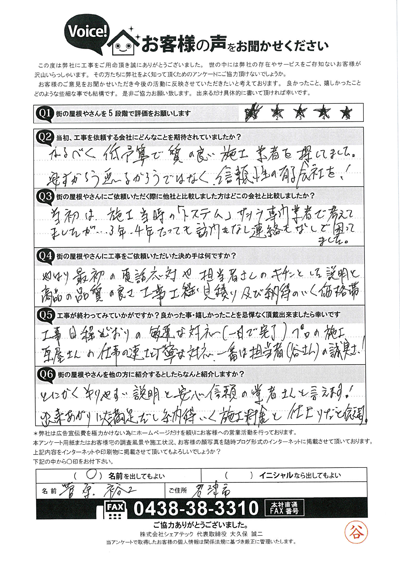 Voice! お客様の声をお聞かせください
この度は弊社に工事をご用命頂き誠にありがとうございました。世の中には弊社の存在やサービスをご存知ないお客様が
沢山いらっしゃいます。その方たちに弊社をよく知って頂くためのアンケートにご協力頂けないでしょうか。
お客様のご意見をお聞かせいただき今後の活動に反映させていただきたいと考えております。良かったこと、嬉しかったこと
どのような些細な事でも結構です。是非ご協力お願い致します。出来るだけ具体的に書いて頂ければ幸いです。
Q1 街の屋根やさんを5段階で評価をお願いします ★ ★ ★ ★ ★
Q2 当初、工事を依頼する会社にどんなことを期待されていましたか?
なるべく低予算で質の良い施工業者を探してました。
安すかろう悪るかろうではなく、信頼性の有る会社を!
Q3 街の屋根やさんにご依頼いただく際に他社と比較しました方はどこの会社と比較しましたか?
当初は、施工当時の
専門業者で考えて
ましたが…3年、4年たっても訪門もなし連絡もなしで困って
ました。
Q4 街の屋根やさんに工事をご依頼いただいた決め手は何ですか?
やはり最初の電話応対や担当者さんのキチンとした説明と
商品の品質の良さ 工事工程 見積り及び納得のいく価格帯
Q5 工事が終わってみていかがですか?良かった事・嬉しかったことを忌憚なく頂戴出来ましたら幸いです
工事日程どおりの敏速な対応(一日で完了)プロの施工
瓦屋さんの仕事の速さ丁寧な対応 一番は担当者(谷さん)の誠実さ!
Q6 街の屋根やさんを他の方に紹介するとしたらなんと紹介しますか?
とにかく判りやすい説明と安心信頼の業者さんと言えます!
出来あがりは満足だし、納得いく施工料金と仕上りだと
※弊社は広告宣伝費を極力かけない為にホームページだけを頼りにお客様への営業活動を行っております。
本アンケート用紙またはお客様宅の調査風景や施工状況、お客様の顔写真を随時ブログ形式のインターネットに掲載させて頂いております。
上記内容をインターネットや印刷物に掲載させて頂いてもよろしいでしょうか?
下記の中から○印をお付下さい。
(○)名前を出してもよい ( )イニシャルなら出してもよい
名前 菅原 裕二 ご住所 君津市
FAX 0438-38-3310 本社直通 FAX番号
ご協力ありがとうございました。
株式会社シェアテック 代表取締役 大久保 誠二
当アンケートで取得したお客様の個人情報は関係法規に基づき厳正に管理いたします。
谷